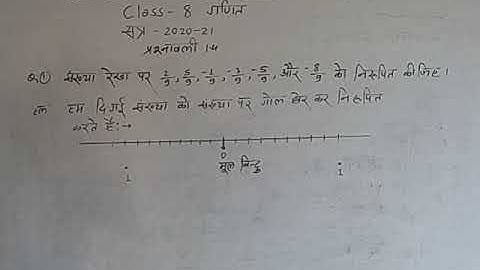 Class - 8 गणित
सत्र - 2020-21
प्रश्नावली
Q.① संख्या रेखा पर 2/9, 5/9, -1/9, -7/9, -5/9, और -8/9 को निरूपित कीजिए।
हल हम दिगई संख्या को संख्या पर गोल घेर कर निरूपित
करते है:→
0
मूल बिन्दु